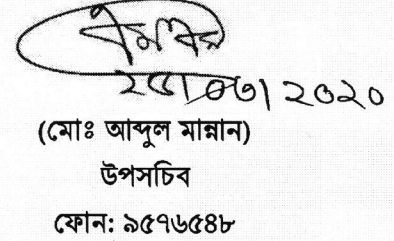 ২৫/০৩/২০২০
(মোঃ আব্দুল মান্নান)
উপসচিব
ফোন: ৯৫৭৬৫৪৮